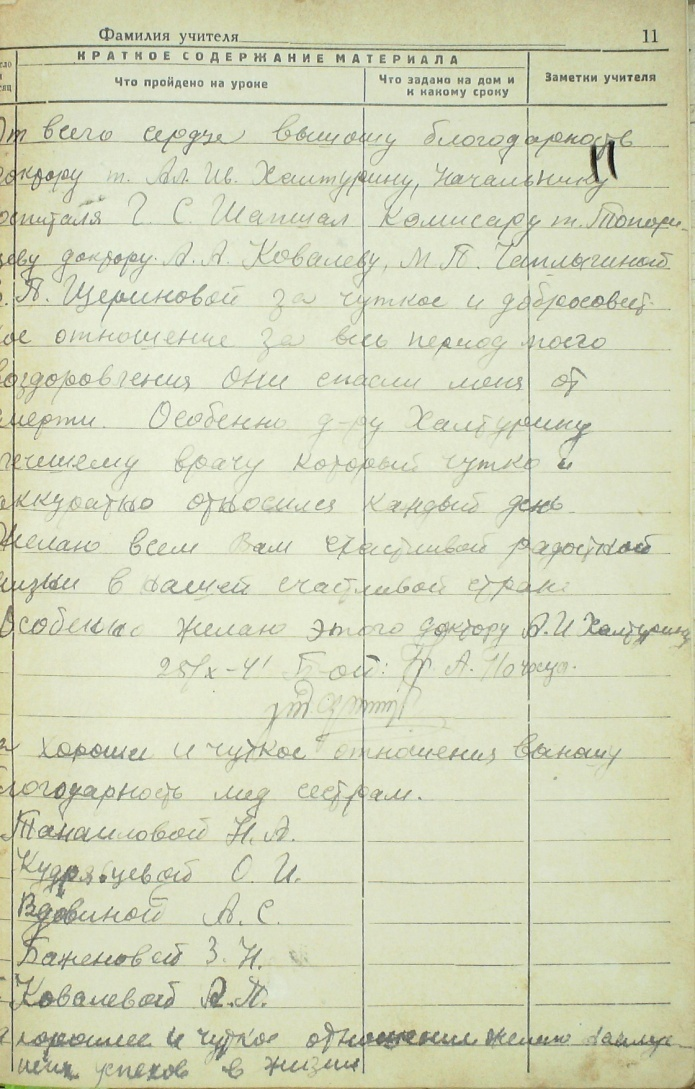 Фамилия учителя 11
КРАТКОЕ СОДЕРЖАНИЕ МАТЕРИАЛА
Что пройдено на уроке
Что задано на дом и к какому сроку
Заметки учителя
От всего сердца выношу благодарность
доктору т. Ал. Ив. Халтурину, Начальнику
оспиталя Г. С. Комисару т. Топори-
цеву доктору А. А. Ковалеву, М. П. Чаплыгиной
П. Щериновой за чуткое и добросовест-
ное отношение за весь период моего
воздоровления Они спасли меня от
смерти. Особенно д-ру Халтурину
лечешему врачу который чутко и
аккуратно относился каждый день
Желаю всем Вам счастливой радостной
жизни в нашей счастливой стране
Особенно желаю этого доктору А. И Халтурину
25/X-41 Б-ой: А.
за хороши и чуткое отношения выношу
благодарность мед сестрам.
Н. А.
Кудрявцевой О. И.
Вдовиной А. С.
Баженовой З. Н.
Ковалевой А. П.
хорошее и чуткое отношения желаю
успехов в жизни